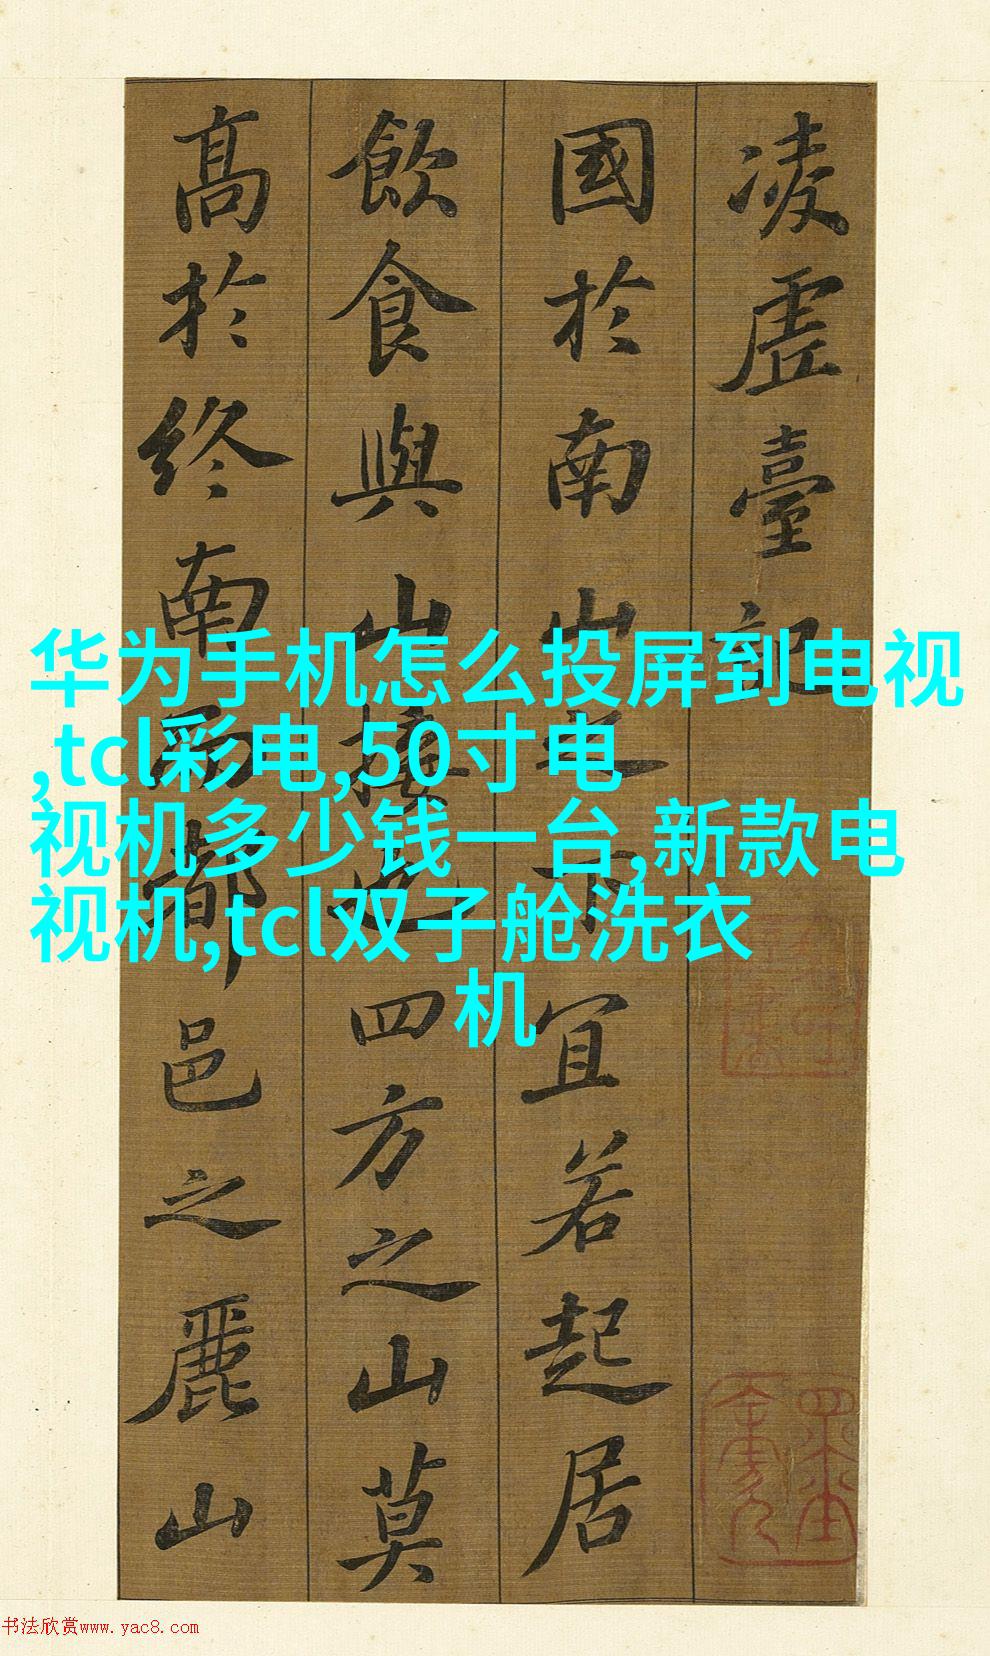 凌虛臺記
國於南山之下宜若起居
飲食與山接也四方之山莫
高於終南而都邑之麗山
华为手机怎么投屏到电视
,tcl彩电,50寸电
视机多少钱一台,新款电
视机,tcl双子舱洗衣
机
书法欣赏www.yac8.com